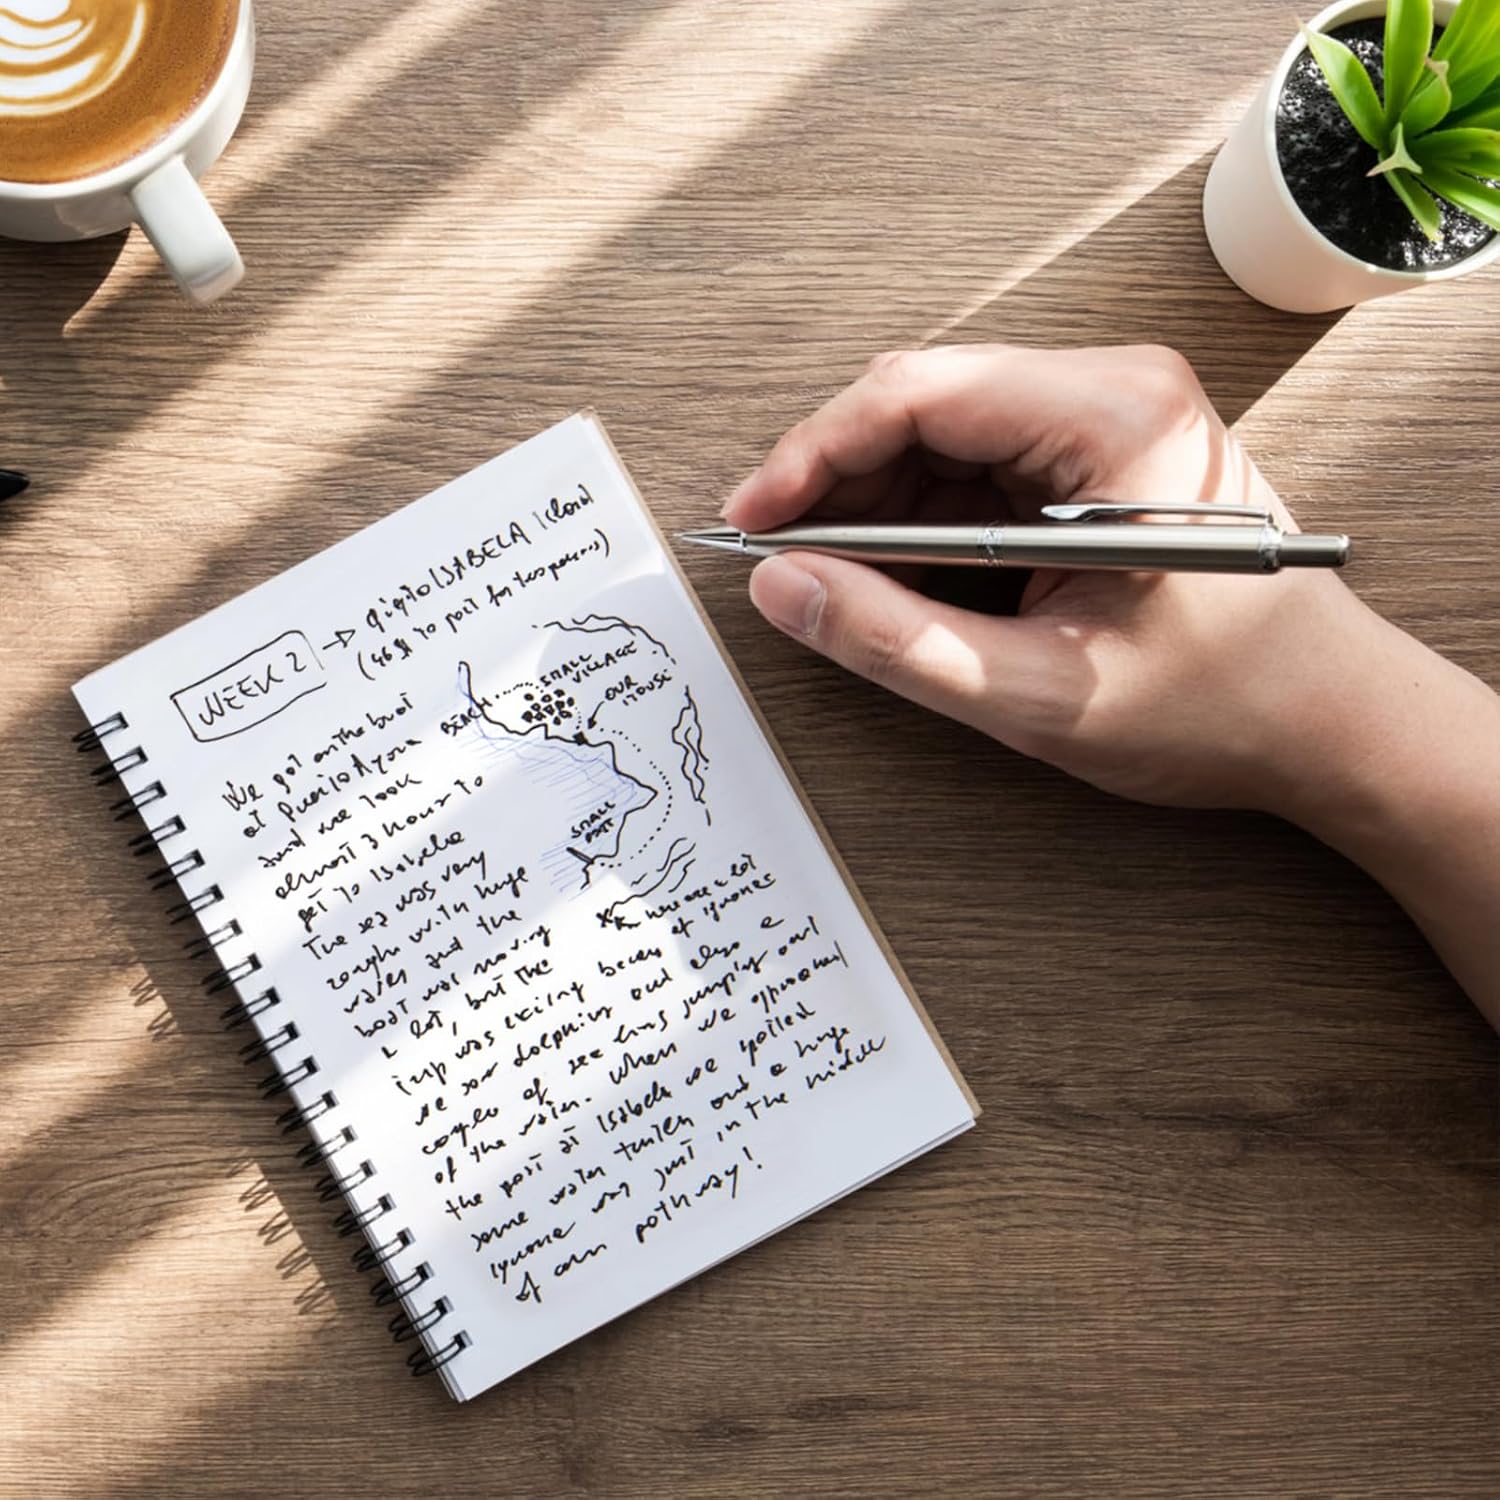 WEEK 2 → going to ISABELA Island
(46$ to port for two persons)
We got on the boat
at Puerto Ayora
and we took
almost 3 hours to
get to Isabela
The sea was very
rough with huge
waves and the
boat was moving
a lot, but the
trip was exciting becaus
we saw dolphins and also a
couple of sea lions jumping out
of the water. When we approached
the port at Isabela we spotted
some water turtles and a huge
iguana was just in the middle
of our pathway!
BEACH
SMALL
VILLAGE
OUR
HOUSE
SMALL
PORT
X
here are a lot
of iguanas